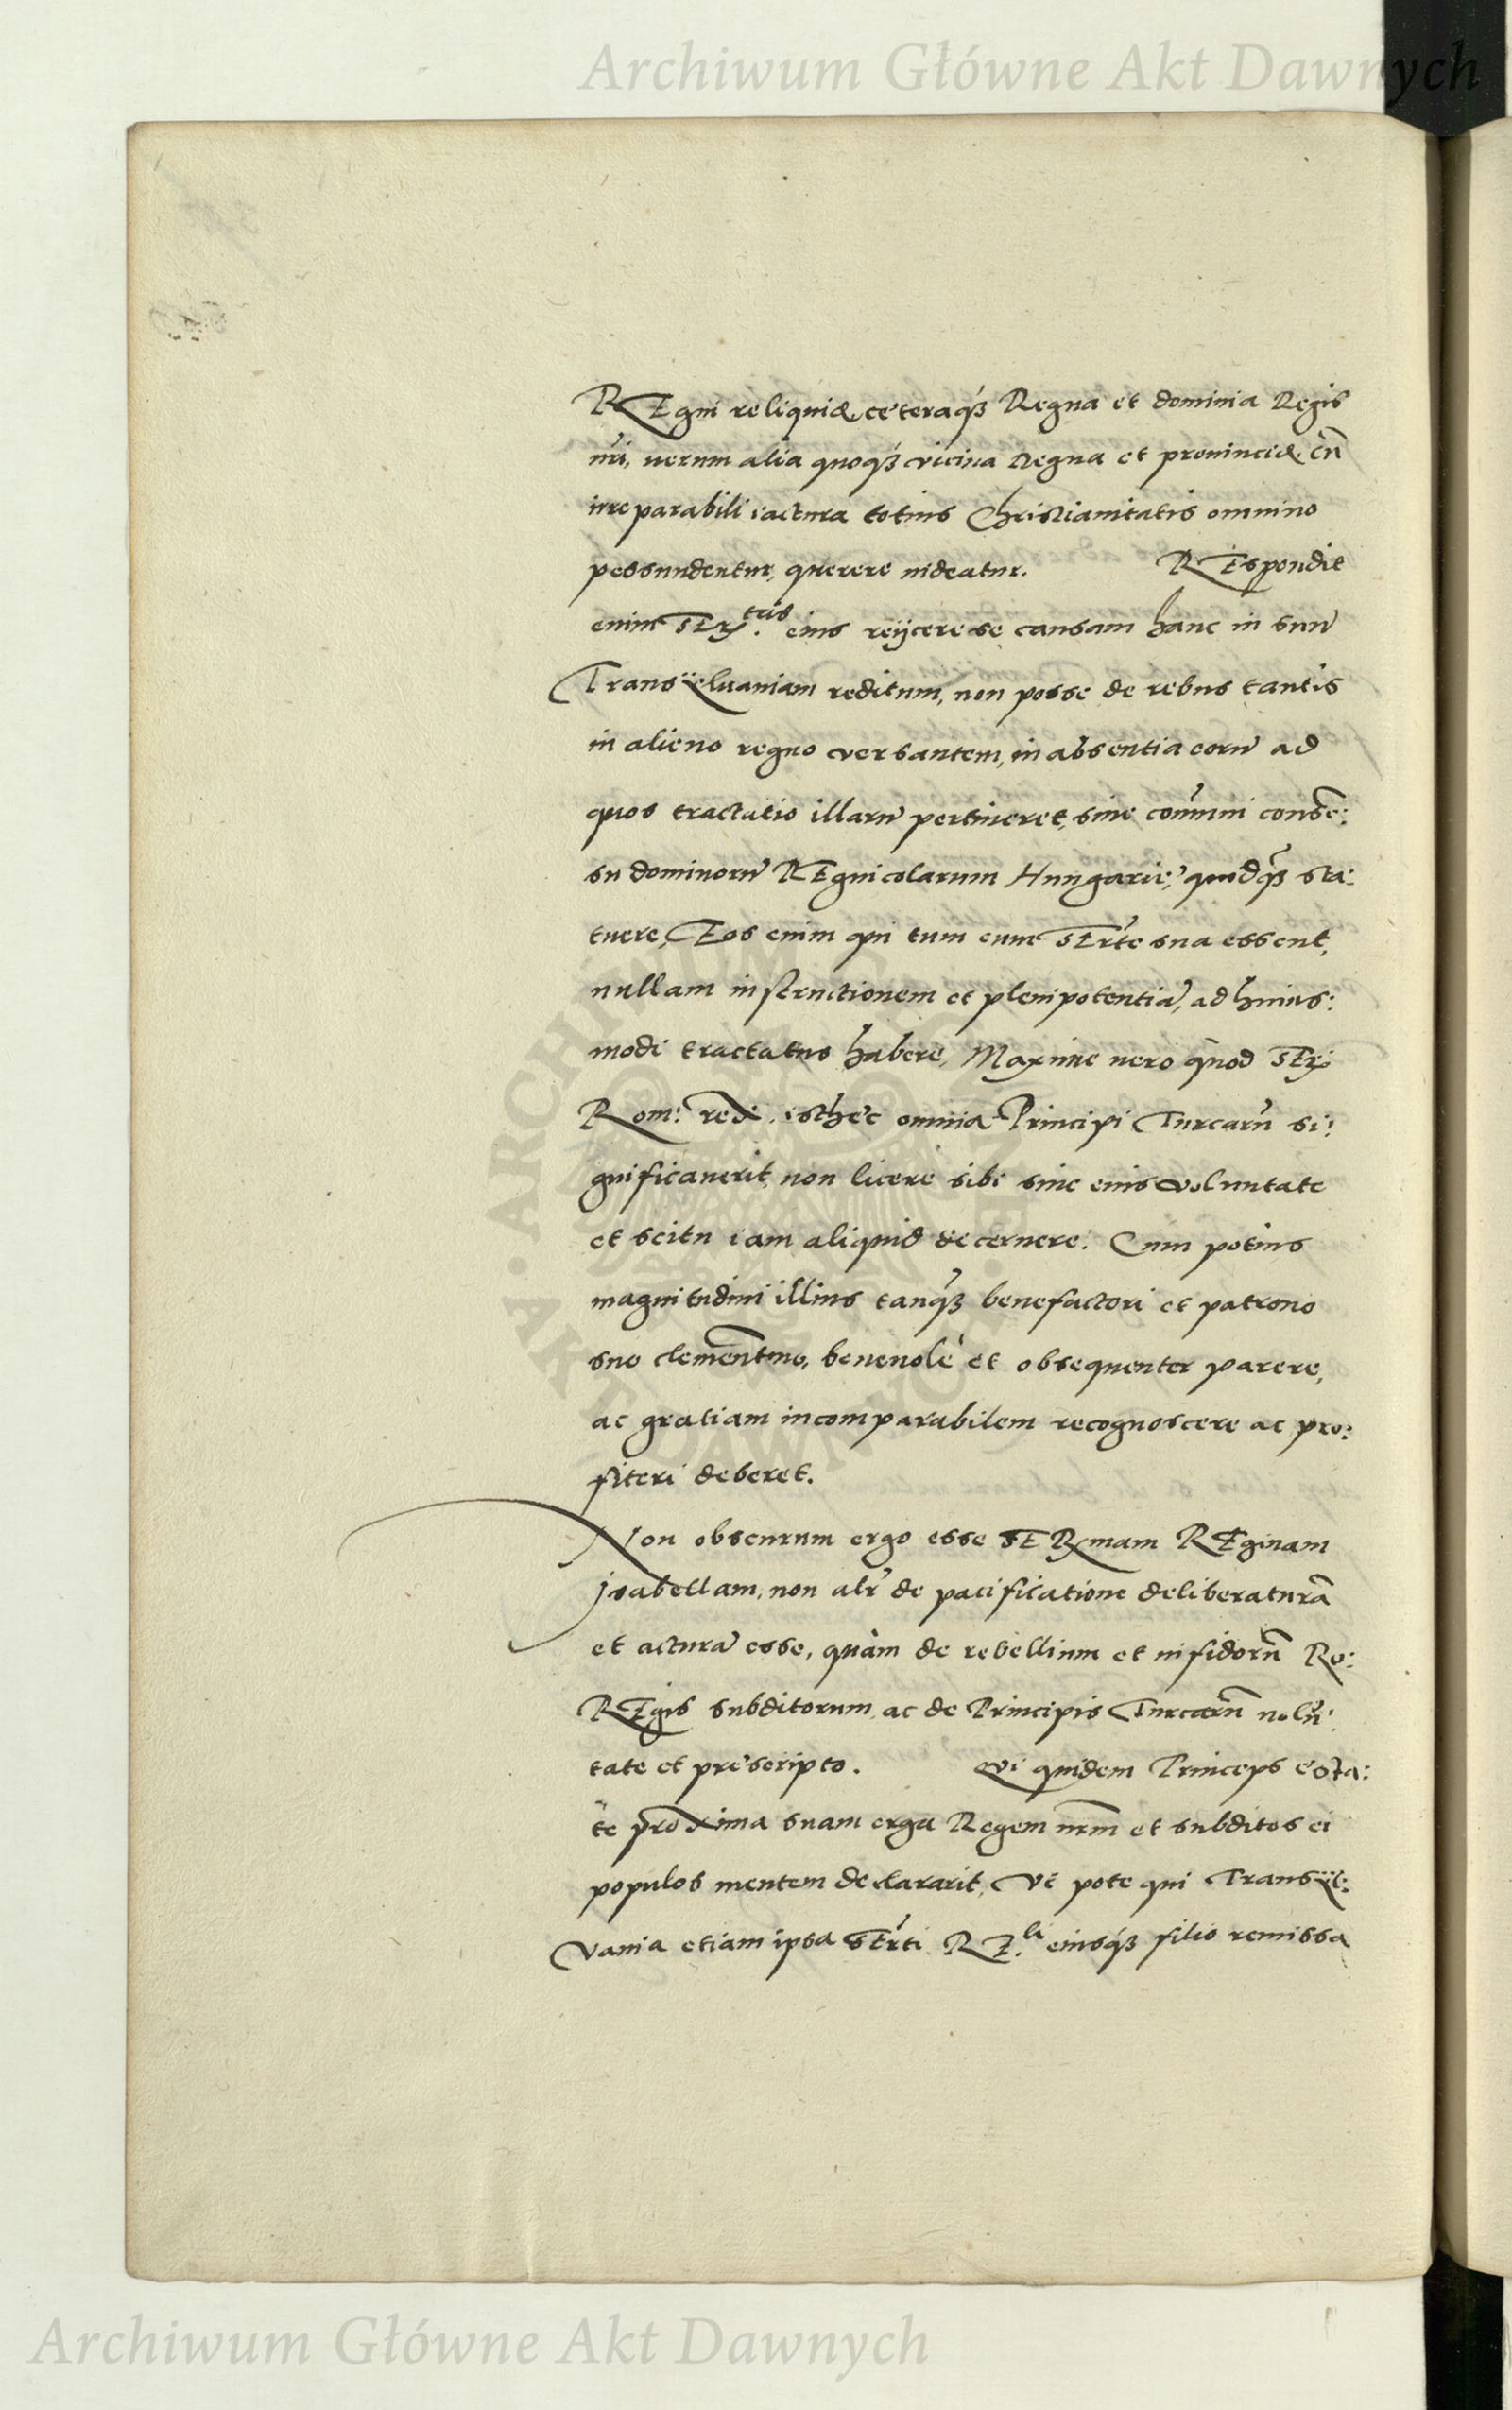 Archiwum Główne Akt Dawnych
REgni reliquiæ, cęteraq́ʒ Regna et dominia Regis
nr̃i, uerum alia quoq́ʒ vicina Regna et prouinciæ, cũ
irreparabili iactura totius Christianitatis omnino
pessundentur, querere uideatur. REspondit
enim SEr.tas eius reijcere se causam hanc in suũ
Transÿluaniam reditum, non posse de rebus tantis
in alieno regno versantem, in absentia eorũ ad
quos tractatio illarũ pertineret, sine com̃uni consẽ:
su dominorũ REgnicolarum Hungarię, quidq̃ʒ sta:
tuere, Eos enim qui tum cum SErt̃e sua essent,
nullam instructionem et plenipotentiã, ad huius:
modi tractatus habere, Maxime uero quòd SEr:
Rom: redi. isthęc omnia Principi Turcarũ si:
gnificauerit, non licere sibi sine eius voluntate
et scitu iam aliquid decernere. Cum potius
magnitudini illius tanq̃ʒ benefactori et patrono
suo clementmo, beneuolè et obsequenter parere,
ac gratiam incomparabilem recognoscere ac pro:
fiteri deberet.
Non obscurum ergo esse SERmam REginam
Jsabellam, non alr̃ de pacificatione deliberaturã
et acturã esse, quàm de rebellium et infidorũ Ro:
REgis subditorum, ac de Principis Turcarũ uolũ:
tate et pręscripto. Qui quidem Princeps ęsta:
te proxima suam erga Regem nr̃m et subditos ei
populos mentem declararit, Vt pote qui Transÿl:
Vania etiam ipsa SErt̃i R E.li eiusq́ʒ filio remissa
ARCHIWUM GŁÓWNE AKT DAWNYCH
Archiwum Główne Akt Dawnych